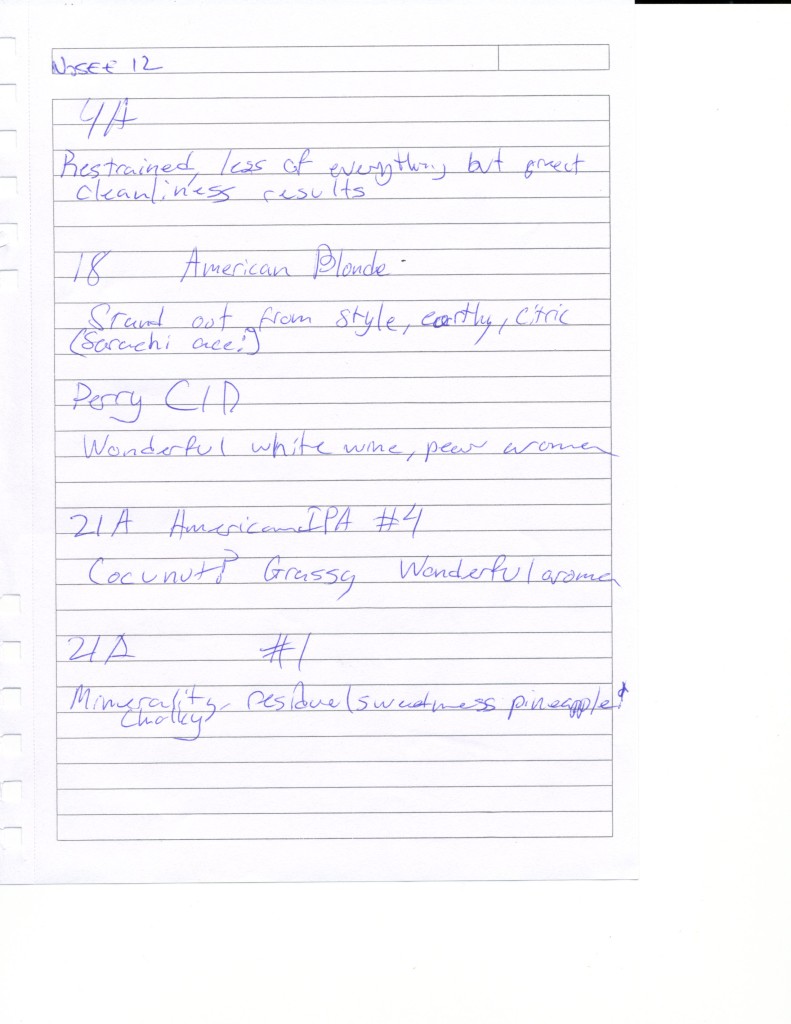 12
4A
Restrained, less of everything but great
cleanliness results
18 American Blonde
Stand out from style, earthy, citric
(Sorachi ace!)
Perry C1D
Wonderful white wine, pear aroma
21A American IPA #4
Cocunut? Grassy Wonderful aroma
21A #1
Minerality, residual sweetness pineapple!
Chalky